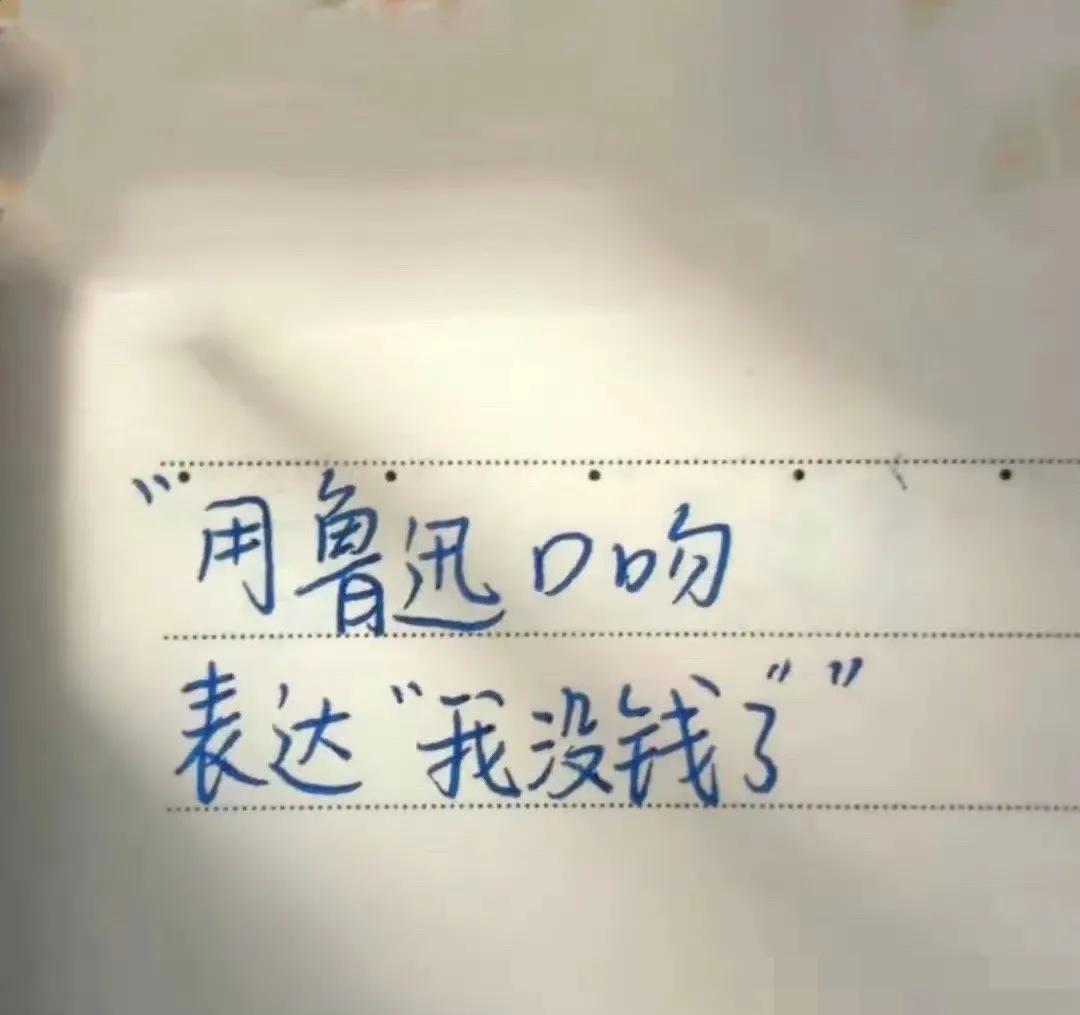 “用鲁迅口吻
表达“我没钱了””